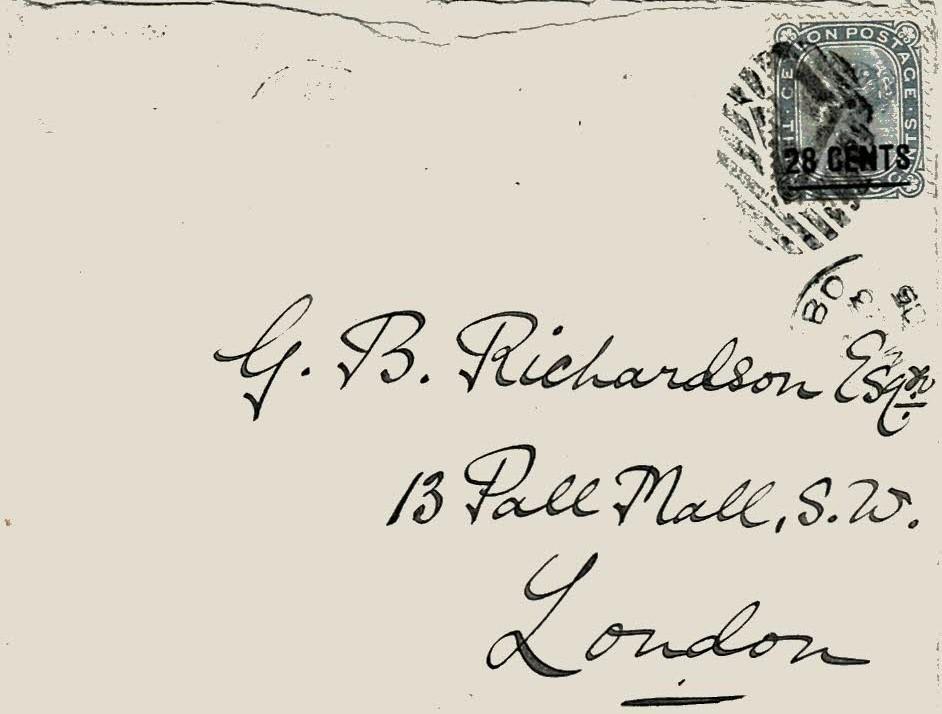 CEYLON POSTAGE
28 CENTS
G. B. Richardson Esqre
13 Pall Mall, S.W.
London